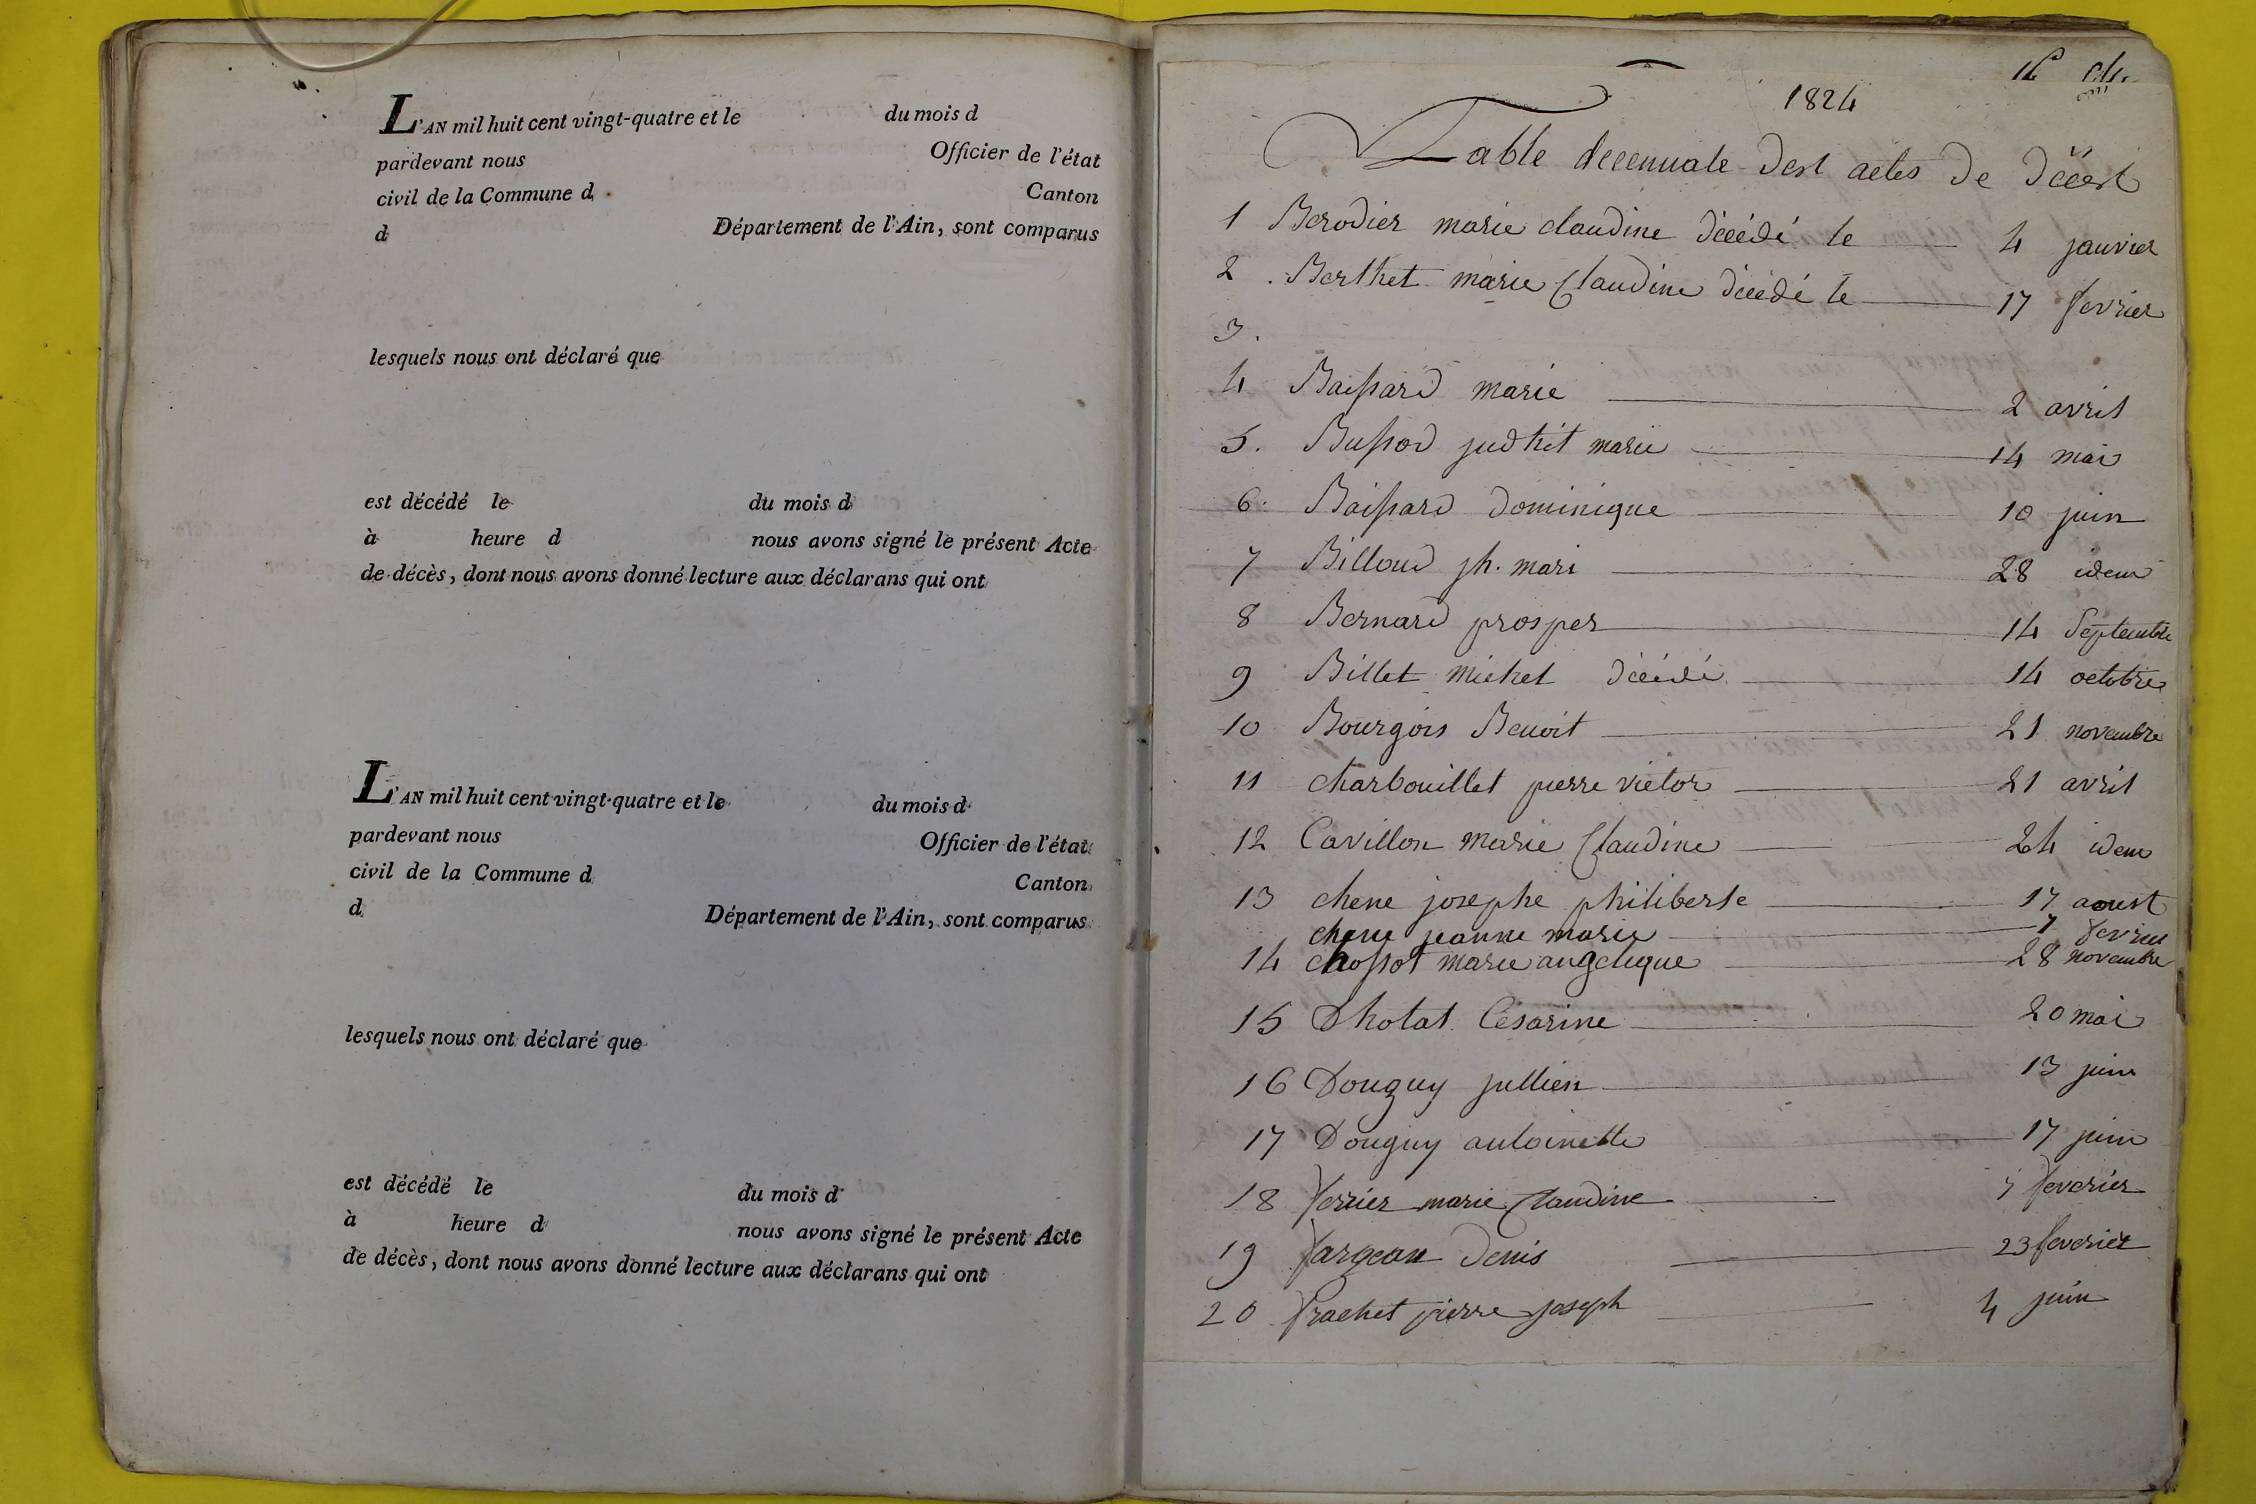 L'AN mil huit cent vingt-quatre et le du mois d
pardevant nous Officier de l'état
civil de la Commune d Canton
d Département de l'Ain, sont comparus
lesquels nous ont déclaré que
est décédé le du mois d
à heure d nous avons signé le présent Acte
de décès, dont nous avons donné lecture aux déclarans qui ont
L'AN mil huit cent vingt-quatre et le du mois d
pardevant nous Officier de l'état
civil de la Commune d Canton
d Département de l'Ain, sont comparus
lesquels nous ont déclaré que
est décédé le du mois d
à heure d nous avons signé le présent Acte
de décès, dont nous avons donné lecture aux déclarans qui ont
1824
Table decennale des actes de décès
1 Berodier marie claudine décédé le 4 janvier
2 Berthet marie Claudine décédé le 17 fevrier
3.
4 Baissard marie 2 avril
5. Bussod judhit marie 14 mai
6. Baissard Dominique 10 juin
7 Billoud jh. mari 28 idem
8 Bernard prosper 14 Septembre
9 Billet michel décédé 14 octobre
10 Bourgois Benoit 21 novembre
11 charbouillet pierre victor 21 avril
12 Cavillon marie Claudine 24 idem
13 chene josephe philiberte 17 aoust
chene jeanne marie 7 fevrier
14 chossot marie angelique 28 novembre
15 Dhotal Césarine 20 mai
16 Douguy jullien 13 juin
17 Douguy antoinette 17 juin
18 ferrier marie Claudine 5 feverier
19 fargeau Denis 23 feverier
20 frachet pierre joseph 4 juin